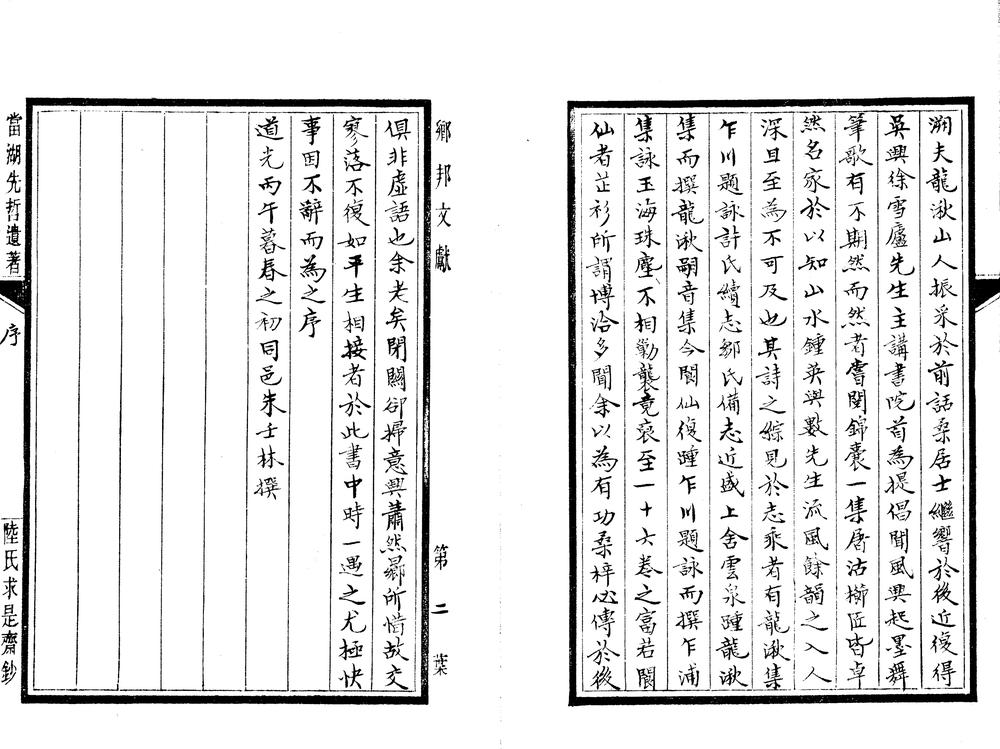 溯夫龍湫山人振采於前話桑居士繼響於後近復得
吳興徐雪廬先生主講書院首為提倡聞風興起墨舞
筆歌有不期然而然者嘗閱錦囊一集屠沽櫛匠皆卓
然名家於以知山水鍾英與數先生流風餘韻之入人
深且至為不可及也其詩之綜見於志乘者有龍湫集
乍川題詠許氏續志鄒氏備志近盛上舍雲泉踵龍湫
集而撰龍湫嗣音集今閬仙復踵乍川題詠而撰乍浦
集詠玉海珠塵不相勦襲竟裒至一十六卷之富若閬
仙者芷衫所謂博洽多聞余以為有功桑梓必傳於後
鄉邦文獻
第二葉
俱非虛語也余老矣閉關卻掃意興蕭然曏所惜故交
寥落不復如平生相接者於此書中時一遇之尤極快
事因不辭而為之序
道光丙午暮春之初同邑朱壬林撰
當湖先哲遺著
序
陸氏求是齋鈔